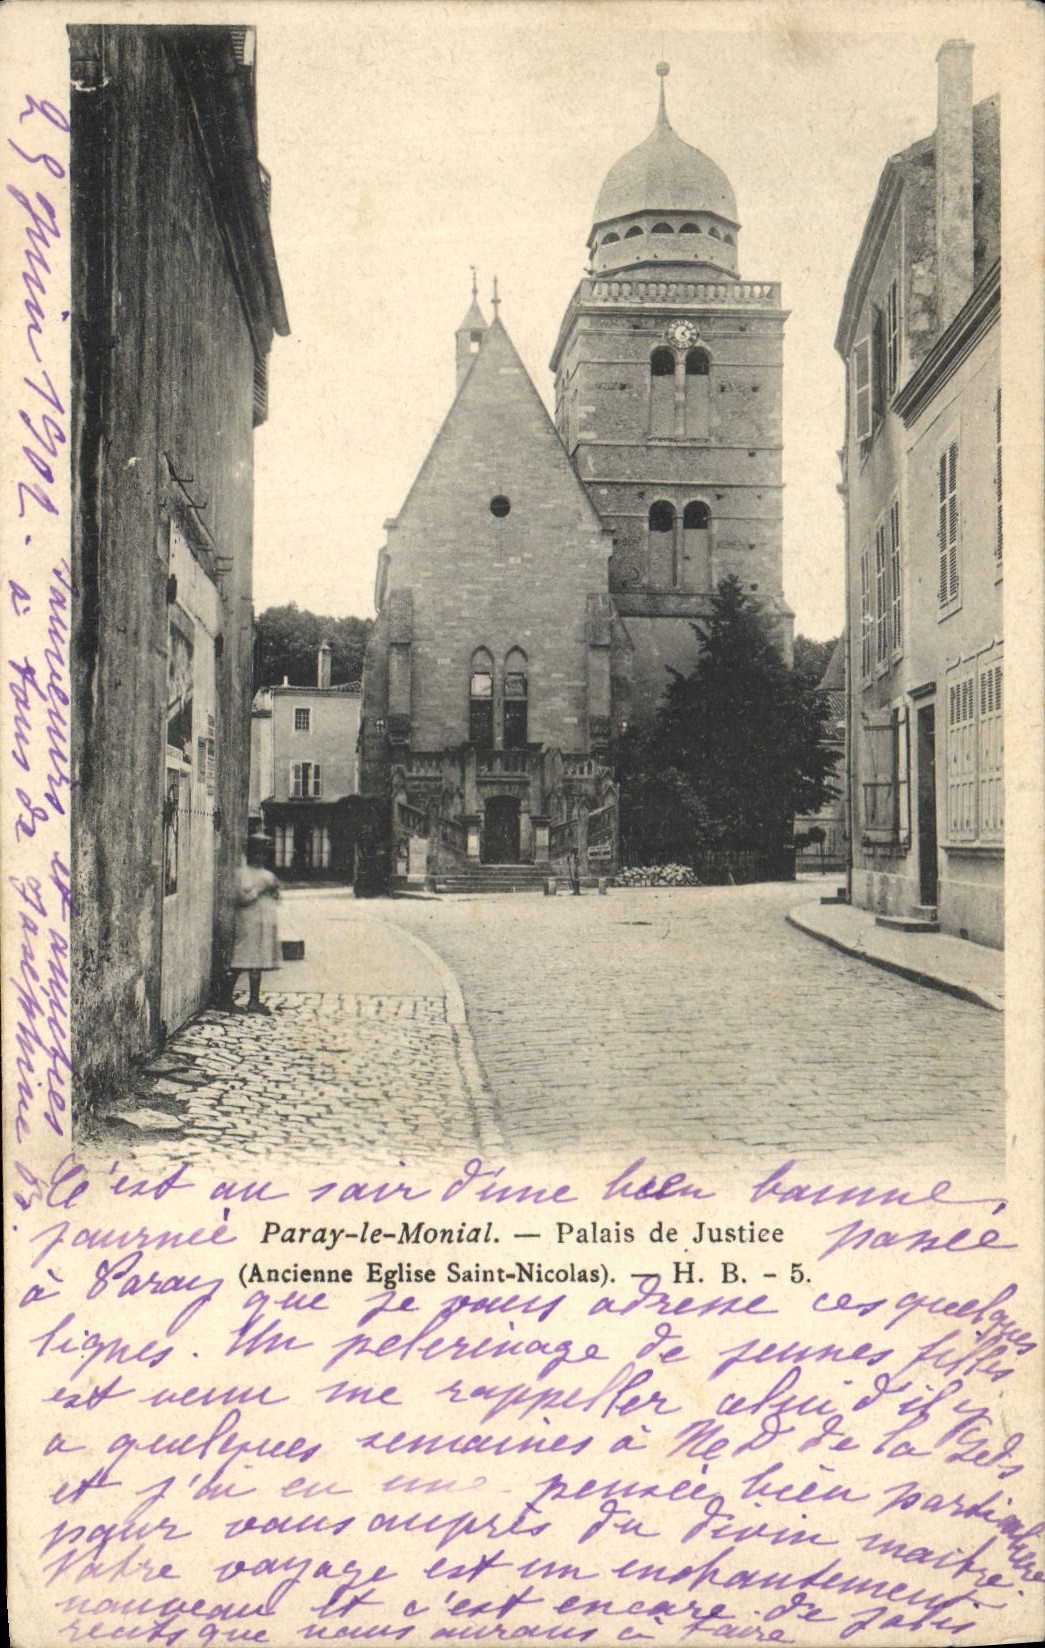 25 Juin 1902 - Souvenirs et amitiés
à tous de Joséphine
C'est au soir d'une bien bonne
journée passée
Paray-le-Monial. — Palais de Justice
(Ancienne Eglise Saint-Nicolas). — H. B. - 5.
à Paray que je vous adresse ces quelques
lignes. Un pelerinage de jeunes filles
est venu me rappeller celui d'il y
a quelques semaines à N D de la
et j'ai eu une pensée bien particulière
pour vous auprès du divin maître.
Votre voyage est un enchantement
nouveau et c'est encore de jolis
recits que vous aurons à faire